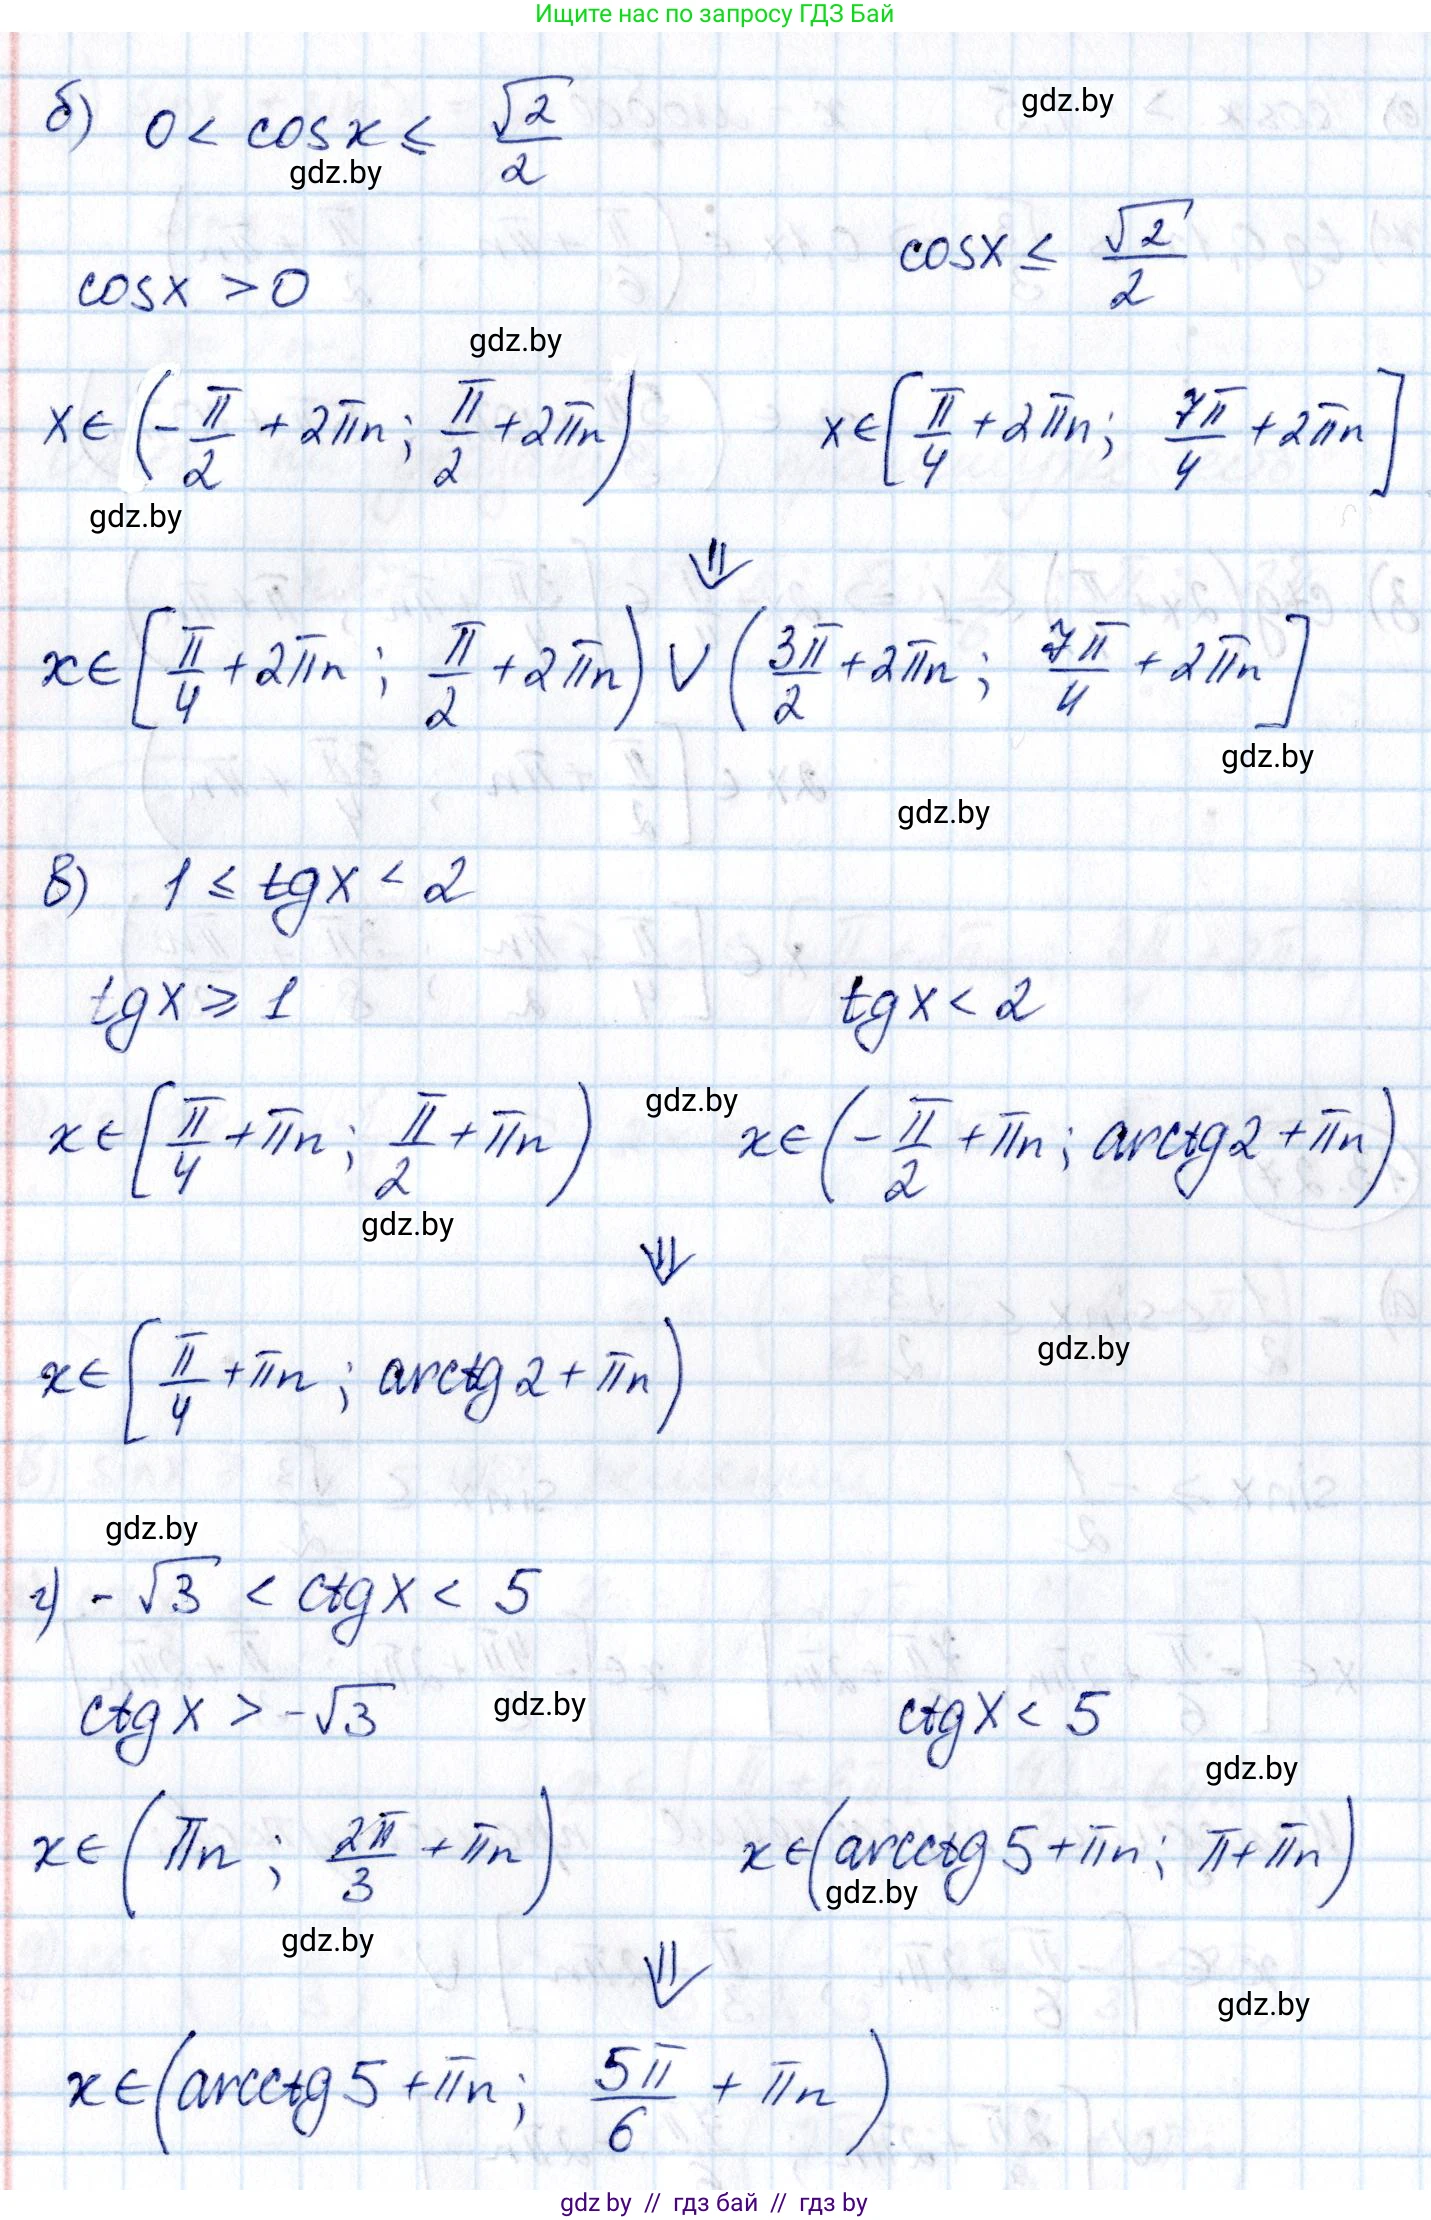 Ищите нас по запросу ГДЗ Бай
б) 0 < cosx ≤ √2/2
gdz.by
gdz.by
cosx > 0 cosx ≤ √2/2
gdz.by
x ∈ (-π/2 + 2πn; π/2 + 2πn) x ∈ [π/4 + 2πn; 7π/4 + 2πn]
gdz.by
⇓
x ∈ [π/4 + 2πn; π/2 + 2πn) ∪ (3π/2 + 2πn; 7π/4 + 2πn]
gdz.by
gdz.by
в) 1 ≤ tgx < 2
tgx ≥ 1 tgx < 2
gdz.by
x ∈ [π/4 + πn; π/2 + πn) x ∈ (-π/2 + πn; arctg2 + πn)
gdz.by
⇓
x ∈ [π/4 + πn; arctg2 + πn)
gdz.by
gdz.by
г) -√3 < ctgx < 5
ctgx > -√3 ctgx < 5
gdz.by
gdz.by
x ∈ (πn; 2π/3 + πn) x ∈ (arcctg5 + πn; π + πn)
gdz.by
gdz.by
⇓
gdz.by
x ∈ (arcctg5 + πn; 5π/6 + πn)
gdz by // гдз бай // гдз by